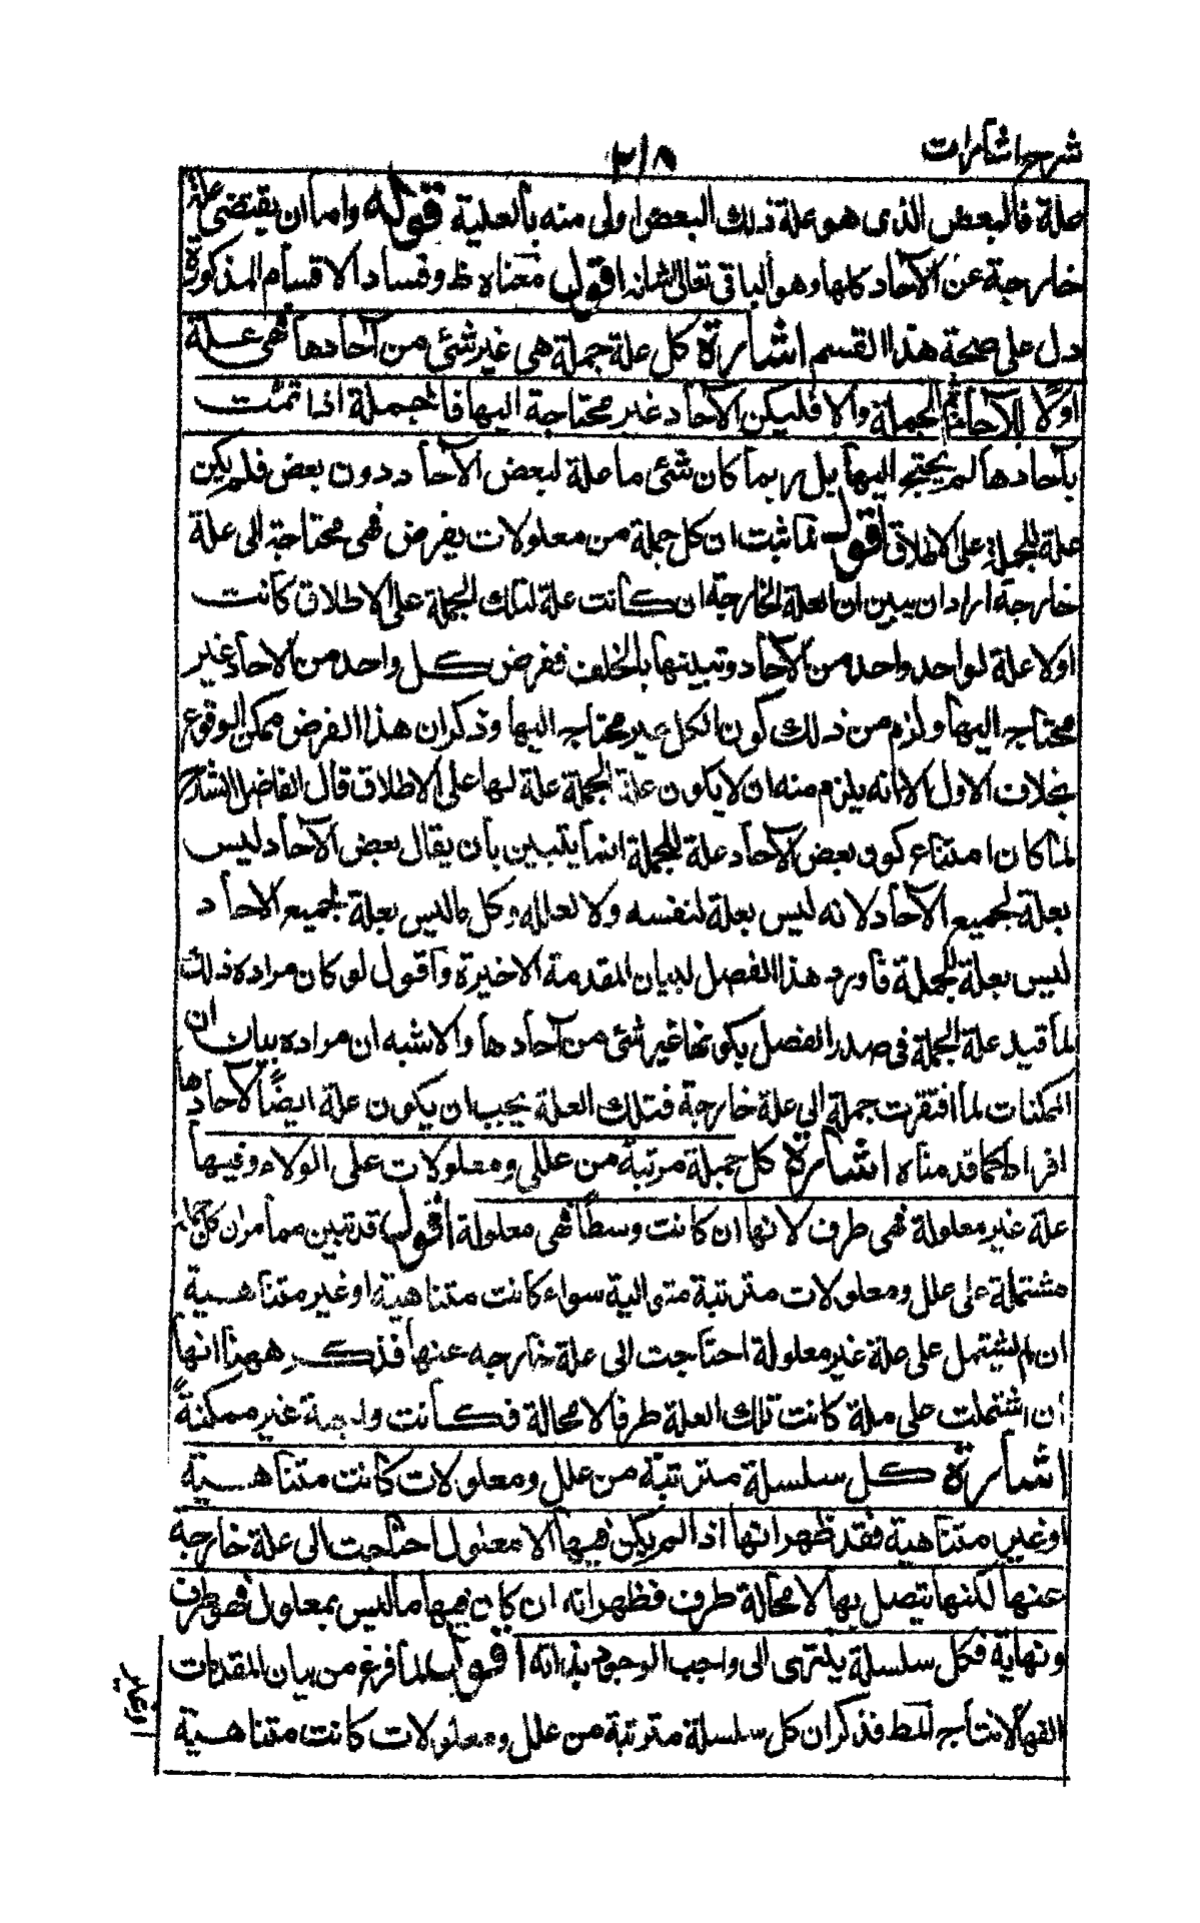 شرح اشارات
٣١٨
علة فالبعض الذى هو علة ذلك البعض اولى منه بالعلية قوله واما ان يقتضى علة
خارجة عن الآحاد كلها وهو الباقى تعالى شانه اقول معناه ظ وفساد الاقسام المذكورة
دل على صحة هذا القسم اشارة كل علة جملة هى غير شئ من آحادها فهى علة
اولًا للآحاد ثم الجملة والا فليكن الآحاد غير محتاجة اليها فالجملة اذا تمت
بآحادها لم يحتج اليها بل ربما كان شئ ما علة لبعض الآحاد دون بعض فلم يكن
علة للجملة على الاطلاق اقول لما ثبت ان كل جملة من معلولات يفرض فهى محتاجة الى علة
خارجة اراد ان يبين ان العلة الخارجة ان كانت علة لتلك الجملة على الاطلاق كانت
اولا علة لواحد واحد من الآحاد وتبيينها بالخلف ففرض كل واحد من الآحاد غير
محتاجه اليها ولزم من ذلك كون الكل غير محتاجه اليها وذكر ان هذا الفرض ممكن الوقوع
بخلاف الاول الا انه يلزم منه ان لا يكون علة الجملة علة لها على الاطلاق قال الفاضل الشارح
لما كان امتناع كون بعض الآحاد علة للجملة انما يتبين بان يقال بعض الآحاد ليس
بعلة لجميع الآحاد لانه ليس بعلة لنفسه ولا لعلله وكل ما ليس بعلة لجميع الآحاد
ليس بعلة للجملة فاورد هذا الفصل لبيان المقدمة الاخيرة واقول لو كان مراده ذلك
لما قيد علة الجملة فى صدر الفصل بكونها غير شئ من آحادها والاشبه ان مراده بيان ان
الممكنات لما افتقرت جملة الى علة خارجة فتلك العلة يجب ان يكون علة ايضًا لآحادها
افرادا كما قدمناه اشارة كل جملة مرتبة من علل ومعلولات على الولاء وفيها
علة غير معلولة فهى طرف لانها ان كانت وسطًا فهى معلولة اقول قد تبين مما مر ان كل جملة
مشتملة على علل ومعلولات مترتبة متوالية سواء كانت متناهية او غير متناهية
ان لم يشتمل على علة غير معلولة احتاجت الى علة خارجه عنها فذكر ههنا انها
ان اشتملت على علة كانت تلك العلة طرفا لا محالة فكانت واجبة غير ممكنة
اشارة كل سلسلة مترتبة من علل ومعلولات كانت متناهية
او غير متناهية فقد ظهر انها اذا لم يكن فيها الا معلول احتاجت الى علة خارجة
عنها لكنها يتصل بها لا محالة طرف فظهر انه ان كان فيها ما ليس بمعلول فهو طرف
ونهاية فكل سلسلة ينتهى الى واجب الوجود بذاته اقول لما فرغ من بيان المقدمات
الفها لانتاج المط فذكر ان كل سلسلة مترتبة من علل ومعلولات كانت متناهية
او غير